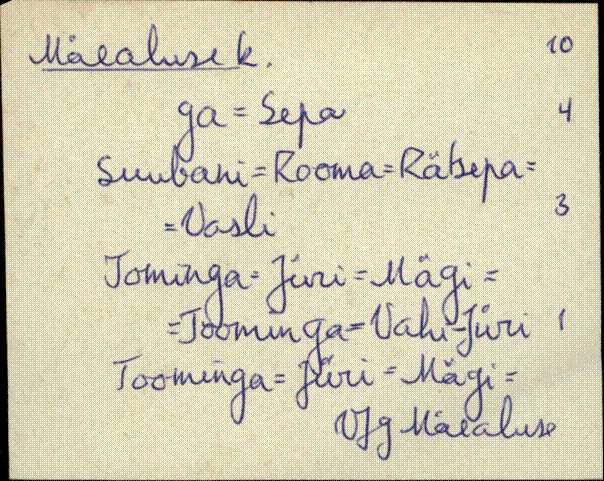 Mäealuse k. 10
ga = Sepa 4
Suubani = Rooma = Rätsepa =
= Vasli 3
Tominga = Jüri = Mägi =
= Toominga = Vahi-Jüri 1
Toominga = Jüri = Mägi =
VJg Mäealuse